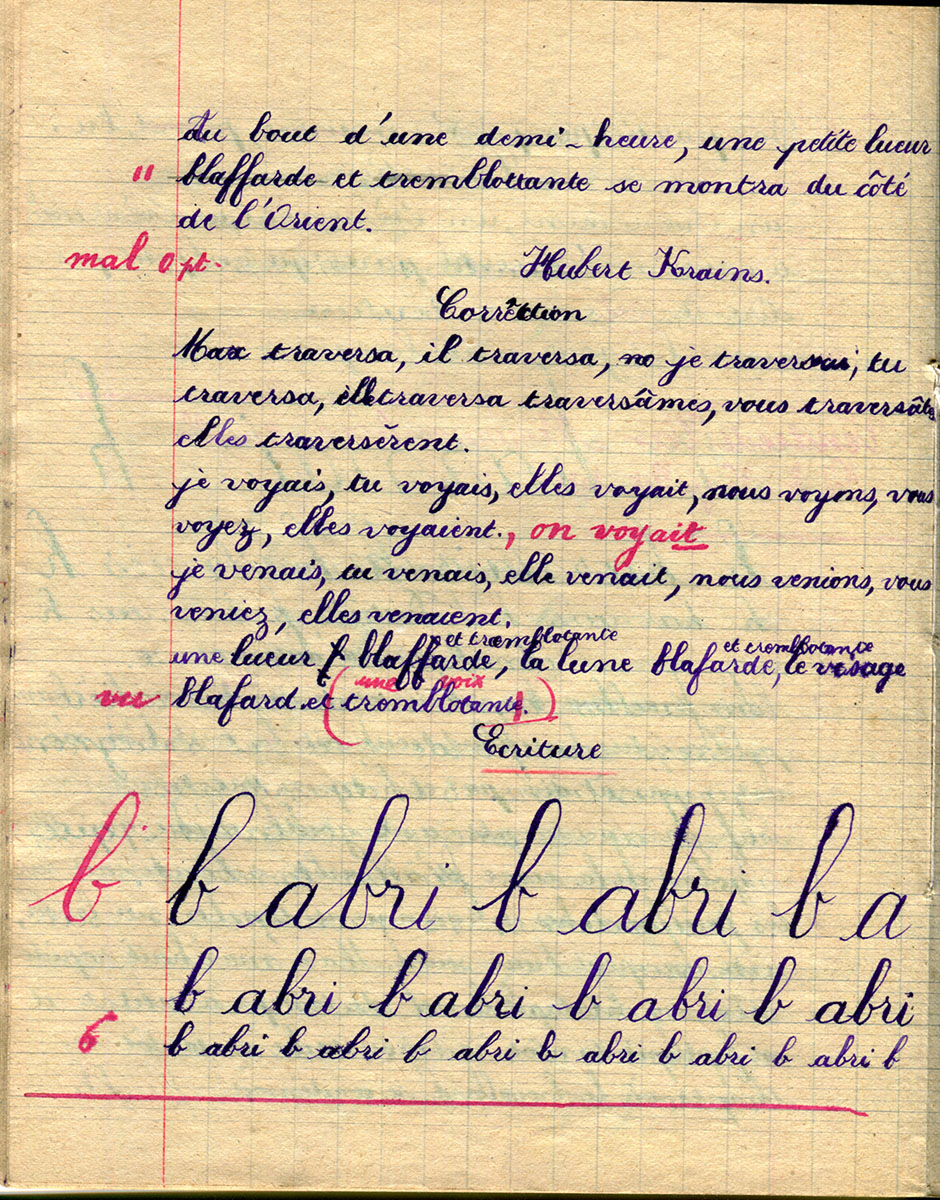 Au bout d'une demi-heure, une petite lueur
" blaffarde et tremblottante se montra du côté
de l'Orient.
mal 0 pt. Hubert Krains.
Corrêction
Max traversa, il traversa, je traversai, tu
traversa, traversa traversâmes, vous traversâte
elles traversèrent.
je voyais, tu voyais, elles voyait, nous voyons, vous
voyez, elles voyaient., on voyait
je venais, tu venais, elle venait, nous venions, vous
veniez, elles venaient.
et tremblotante et tremblotante
une lueur blaffarde, la lune blafarde, le visage
une voix
vu blafard et (tremblotante.)
Ecriture
b b abri b abri b a
b abri b abri b abri b abri
6 b abri b abri b abri b abri b abri b abri b